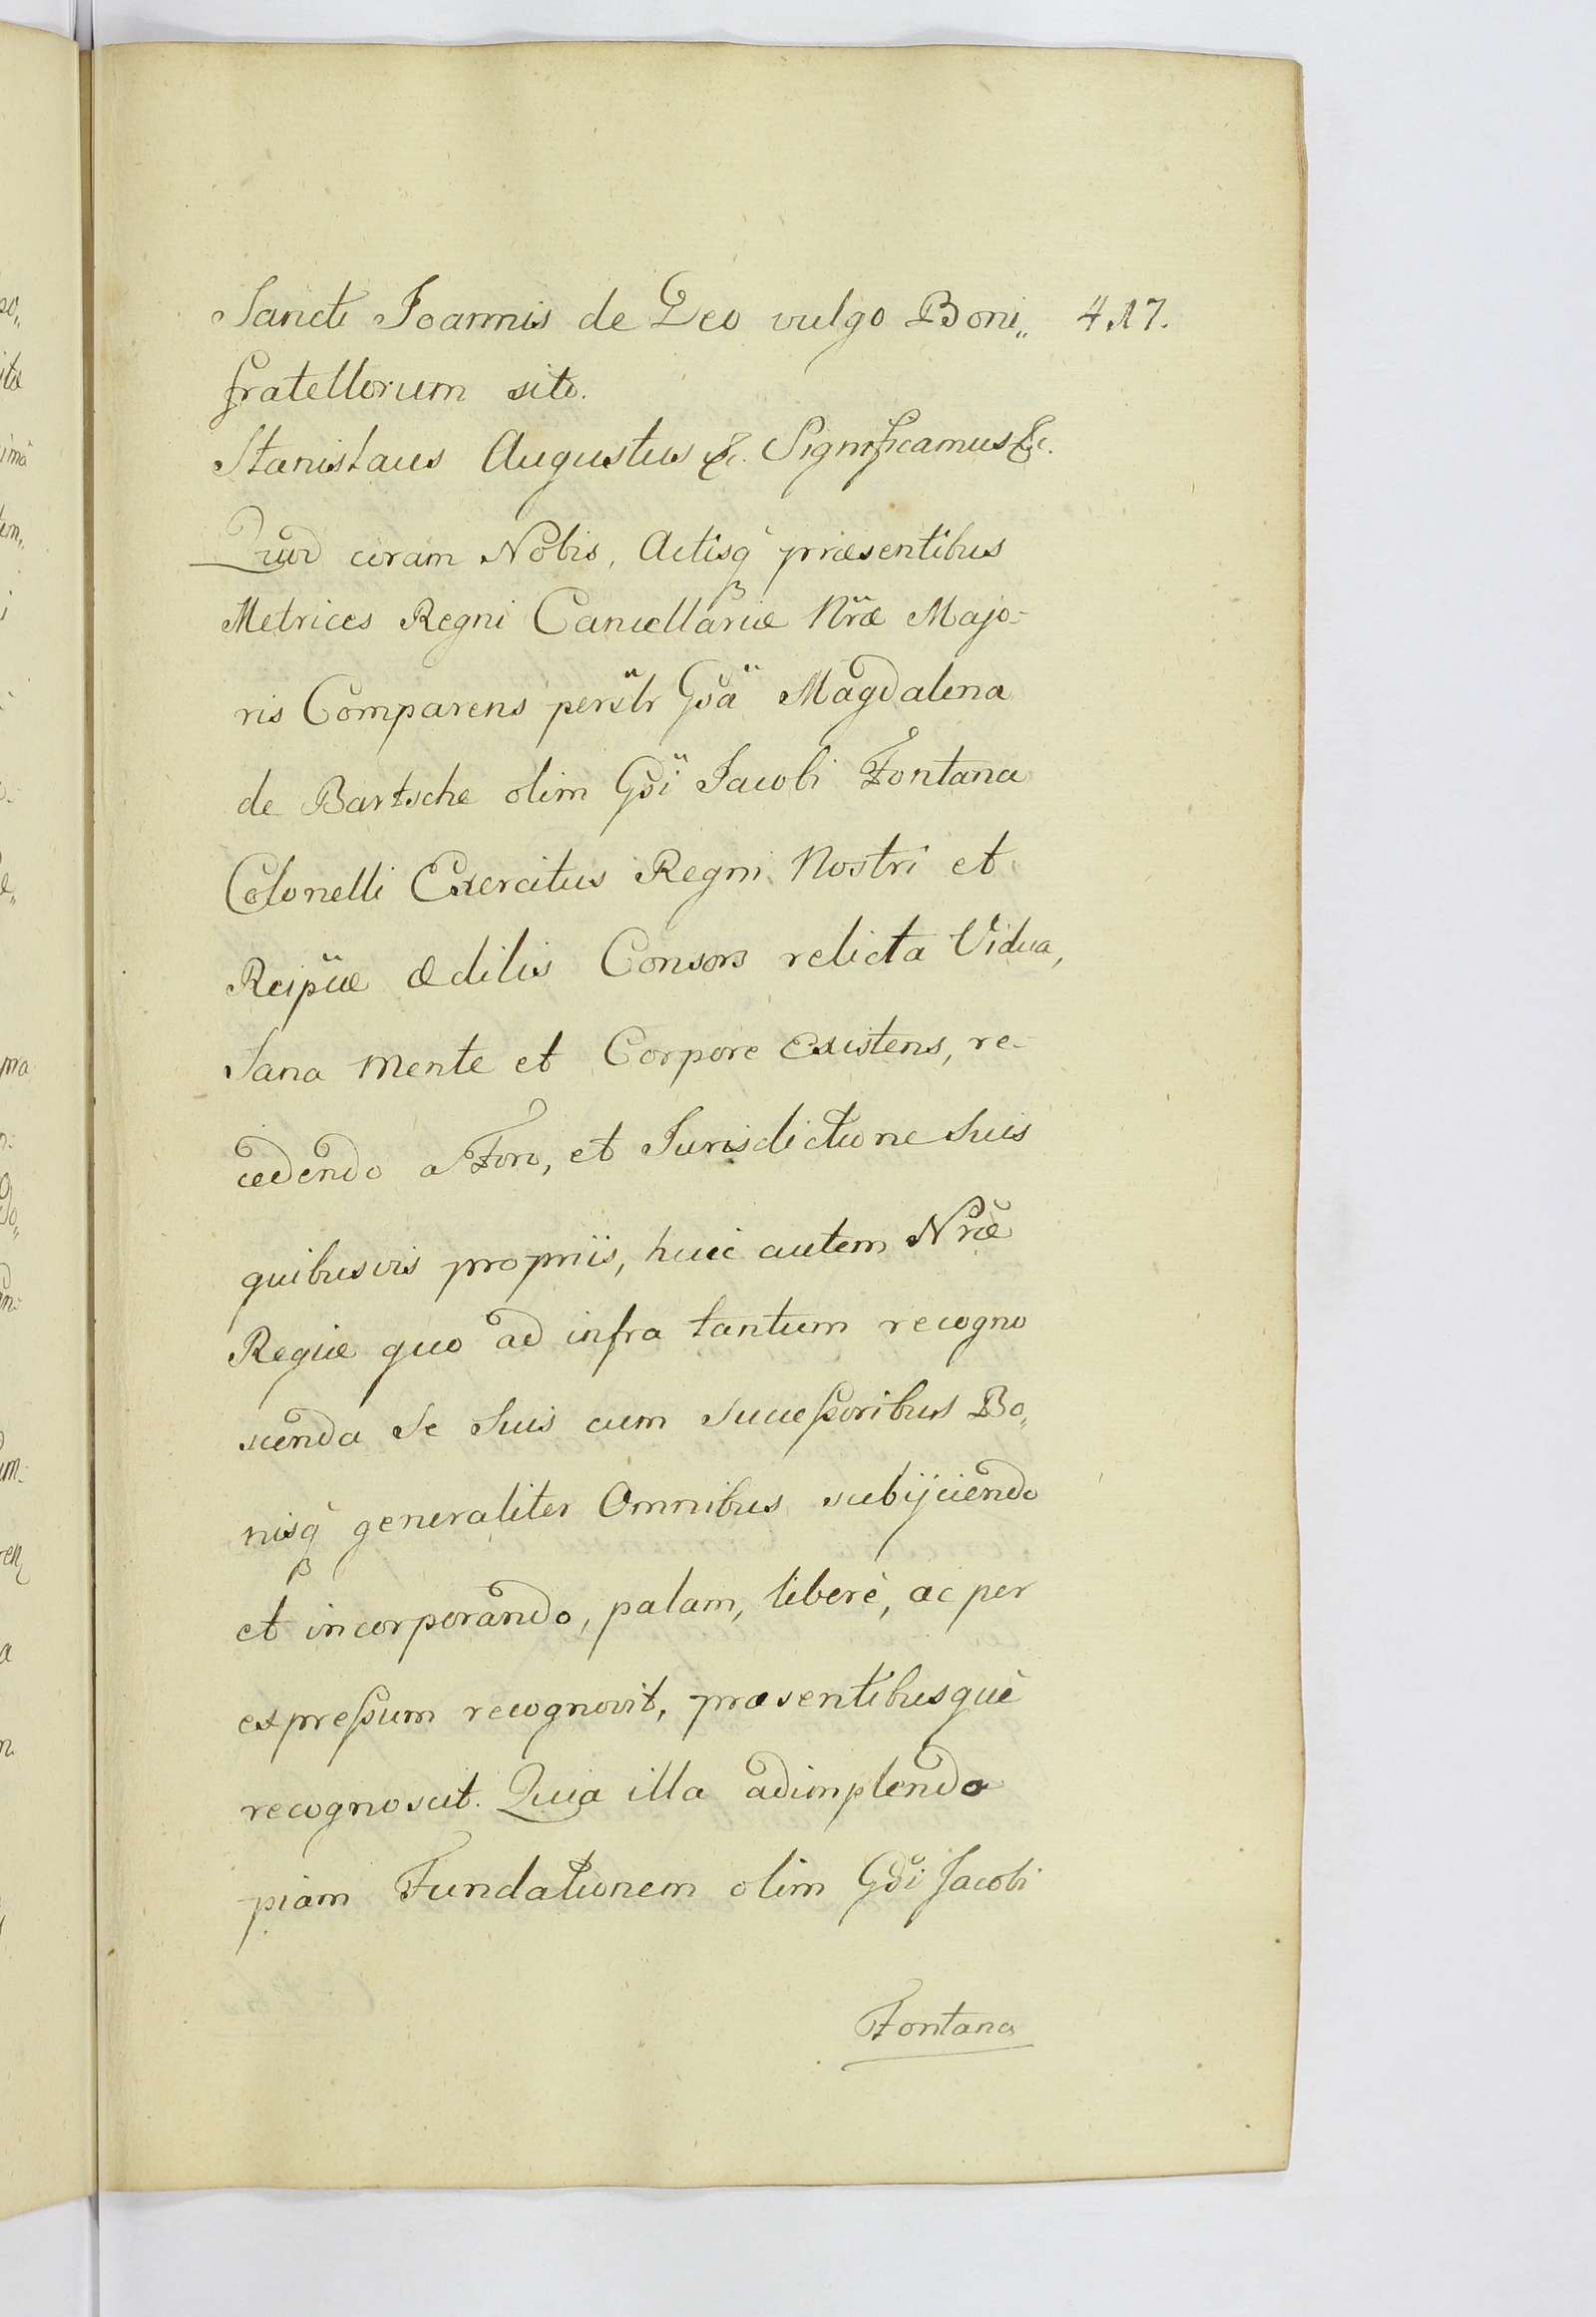 Sancti Joannis de Deo vulgo Boni„ 417.
fratellorum sito.
Stanislaus Augustus &c. Significamus &c.
Quod coram Nobis, Actisq́ præsentibus
Metrices Regni Cancellariæ Nr̈æ Majo-
ris Comparens persl̈r Gsä Magdalena
de Bartsche olim Gsï Jacobi Fontana
Colonelli Exercitus Regni Nostri et
Reipüæ ædilis Consors relicta Vidua,
Sana mente et Corpore Existens, re-
cedendo a Foro, et Jurisdictione Suis
quibusvis propriis, huic autem Nr̃æ
Regiæ quo ad infra tantum recogno
scenda Se Suis cum Sucessoribus Bo„
nisq́ generaliter Omnibus subijciendo
et incorporando, palam, liberè, ac per
expressum recognovit, præsentibusquè
recognoscit. Quia illa adimplendo
piam Fundationem olim Gdĩ Jacobi
Fontana